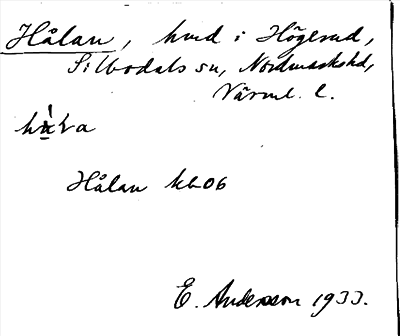 Hålan, hmd i Högerud,
Silbodals sn, Nordmarkshd,
Värml. l.
Hålan kb 06
E. Andersson 1933.